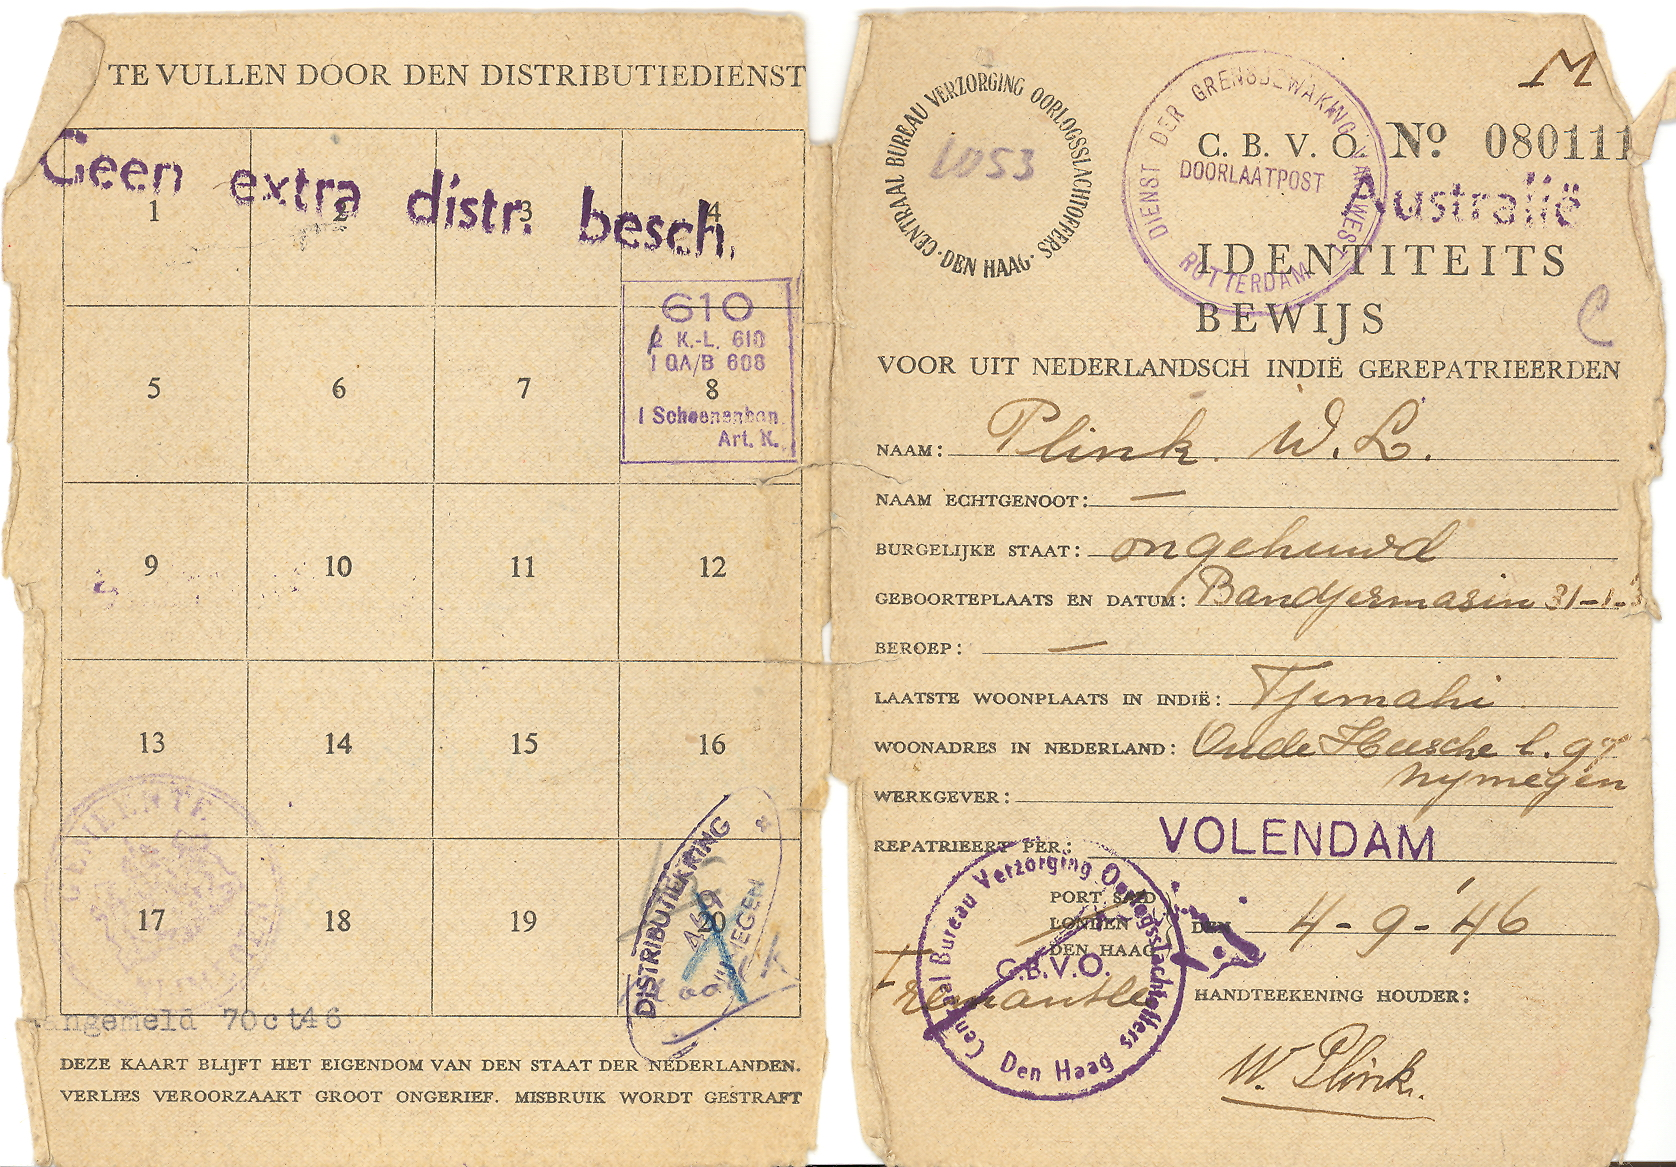 TE VULLEN DOOR DEN DISTRIBUTIEDIENST
Geen extra distr. besch.
1 2 3 4
610
2 K.-L. 610
1 QA/B 608
1 Schoenenbon
Art. K.
5 6 7 8
9 10 11 12
13 14 15 16
17 18 19 20
GEMEENTE
DISTRIBUTIEKRING
469
NIJMEGEN
angemeld 7Oct46
DEZE KAART BLIJFT HET EIGENDOM VAN DEN STAAT DER NEDERLANDEN.
VERLIES VEROORZAAKT GROOT ONGERIEF. MISBRUIK WORDT GESTRAFT
M
CENTRAAL BUREAU VERZORGING OORLOGSSLACHTOFFERS
·DEN HAAG·
1053
DIENST DER GRENSBEWAKING WEST
DOORLAATPOST
ROTTERDAM
C. B. V. O. Nº 080111
Australië
IDENTITEITS
BEWIJS
C
VOOR UIT NEDERLANDSCH INDIË GEREPATRIEERDEN
NAAM: Plink. W. L.
NAAM ECHTGENOOT: —
BURGELIJKE STAAT: ongehuwd
GEBOORTEPLAATS EN DATUM: Bandjermasin 31-1-3
BEROEP: —
LAATSTE WOONPLAATS IN INDIË: Tjimahi
WOONADRES IN NEDERLAND: Oude Heesche l.
Nymegen
WERKGEVER:
REPATRIEERT PER: VOLENDAM
PORT SAID
LONDEN
DEN HAAG
DEN 4-9-'46
Fremantle
Centraal Bureau Verzorging Oorlogsslachtoffers
C.B.V.O.
Den Haag
HANDTEEKENING HOUDER:
W. Plink.